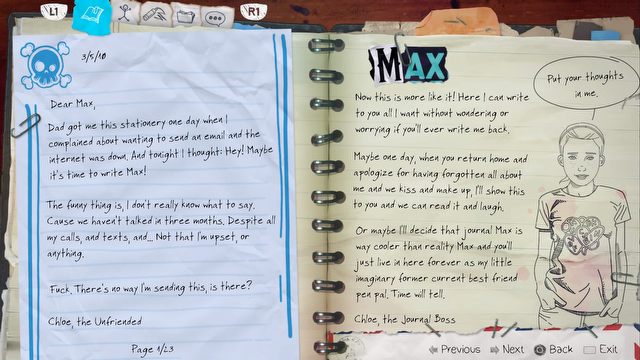 L1
R1
3/5/10
Dear Max,
Dad got me this stationery one day when I
complained about wanting to send an email and the
internet was down. And tonight I thought: Hey! Maybe
it's time to write Max!
The funny thing is, I don't really know what to say.
Cause we haven't talked in three months. Despite all
my calls, and texts, and... Not that I'm upset, or
anything.
Fuck. There's no way I'm sending this, is there?
Chloe, the Unfriended
Page 1/23
MAX
Now this is more like it! Here I can write
to you all I want without wondering or
worrying if you'll ever write me back.
Maybe one day, when you return home and
apologize for having forgotten all about
me and we kiss and make up, I'll show this
to you and we can read it and laugh.
Or maybe I'll decide that journal Max is
way cooler than reality Max and you'll
just live in here forever as my little
imaginary former current best friend
pen pal. Time will tell.
Chloe, the Journal Boss
Put your thoughts
in me.
Previous Next Back Exit